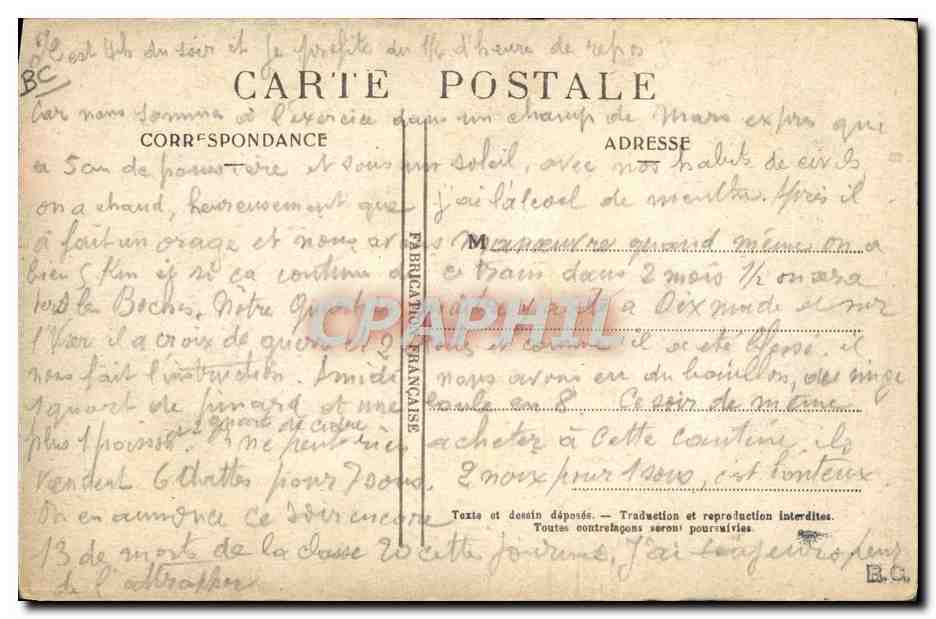 Il est 4h du soir et je profite du 1/2 d'heure de repos
BC
CARTE POSTALE
Car nous sommes à l'exercice dans un champ de Mars expres que
CORRESPONDANCE
ADRESSE
a 5 cm de poussiere et sous un soleil, avec nos habits de civils
on a chaud, heureusement que j'ai l'alcool de menthe. Après il
à fait un orage et nous avons
M
Manœuvré quand même on a
bien 5 Km et si ça continue de ce train dans 2 mois 1/2 on sera
vers les Boches. Notre
à Dixmude et sur
l'Yser il a croix de guerre
il a été blessé. il
nous fait l'instruction. A midi nous avons eu du bouillon, du singe
1 quart de pinard et une boule en 8. Ce soir de même
plus 1 poisson
1 quart de cidre
ne peut rien acheter à cette cantine ils
vendent 6 dattes pour 7 sous, 2 noix pour 1 sous, c'est honteux.
On en annonce ce soir encore
13 de morts de la classe 20 cette journée, J'ai toujours peur
de l'attrapper
FABRICATION FRANÇAISE
Texte et dessin déposés. — Traduction et reproduction interdites.
Toutes contrefaçons seront poursuivies.
B.C.
CPAPHIL